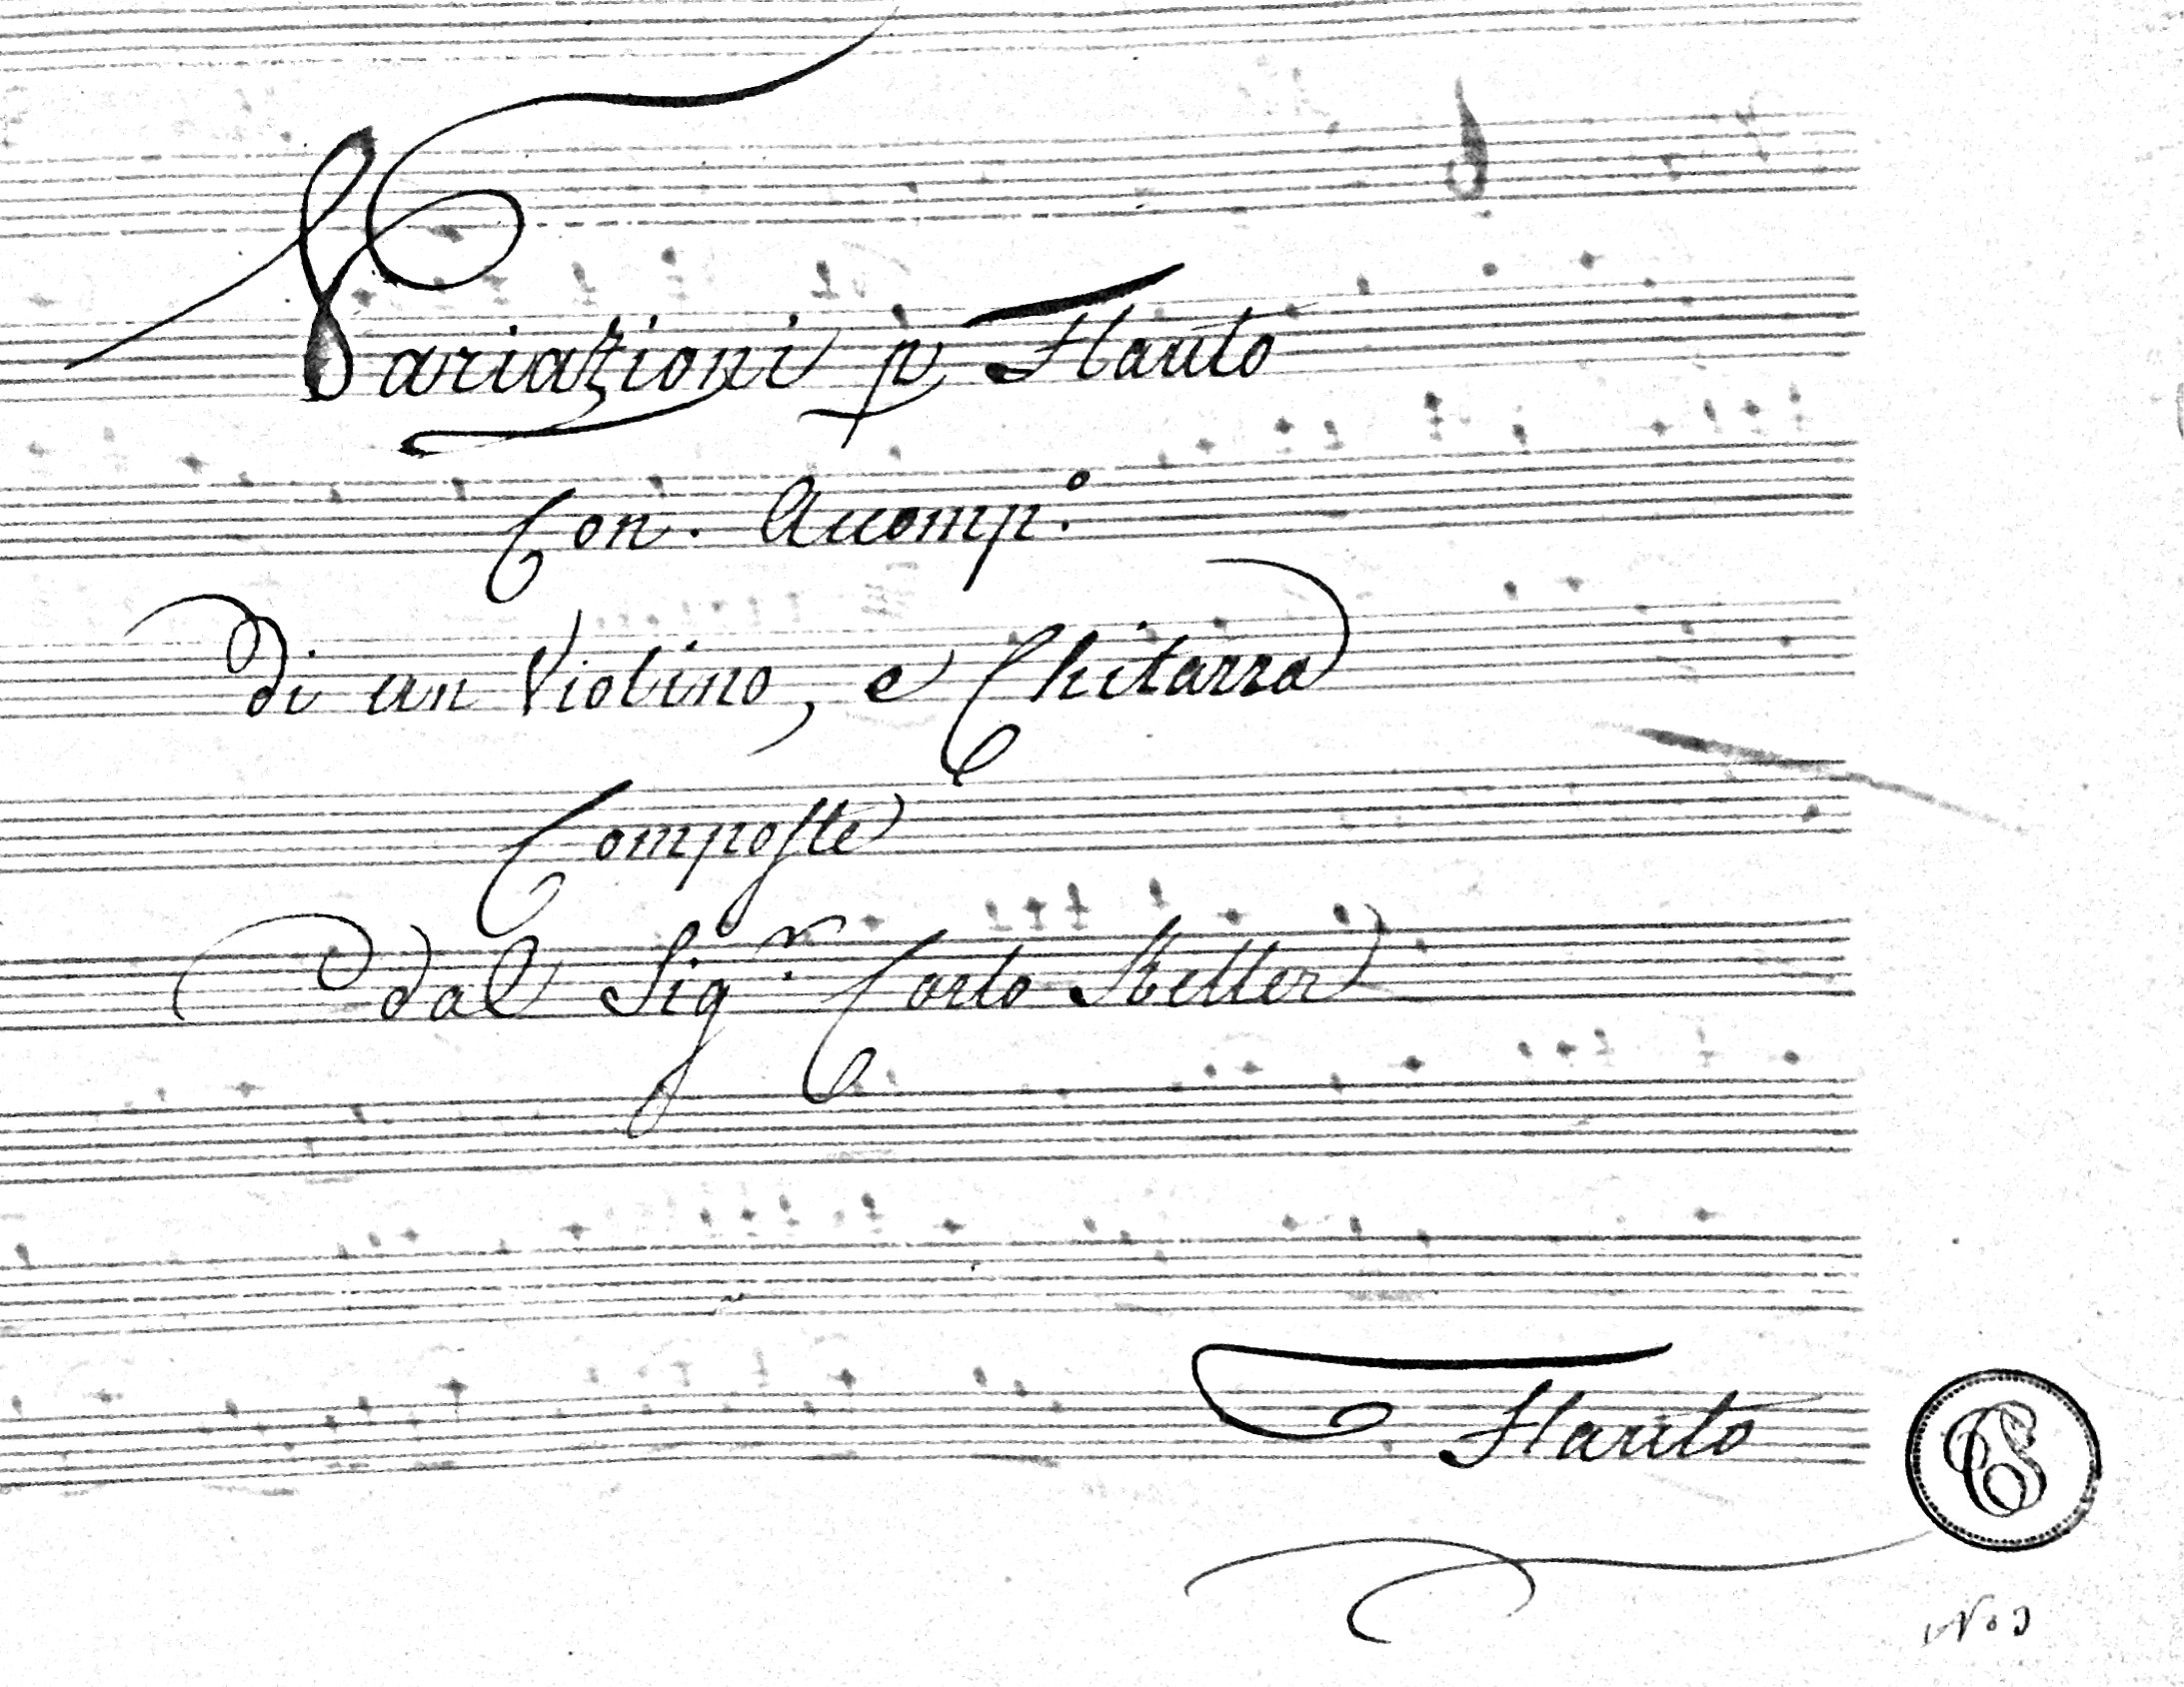 Variazioni p Flauto
Con. Accomp.º
di un Violino, e Chitarra
Composte
dal Sig.r Carlo Keller
Flauto
CS